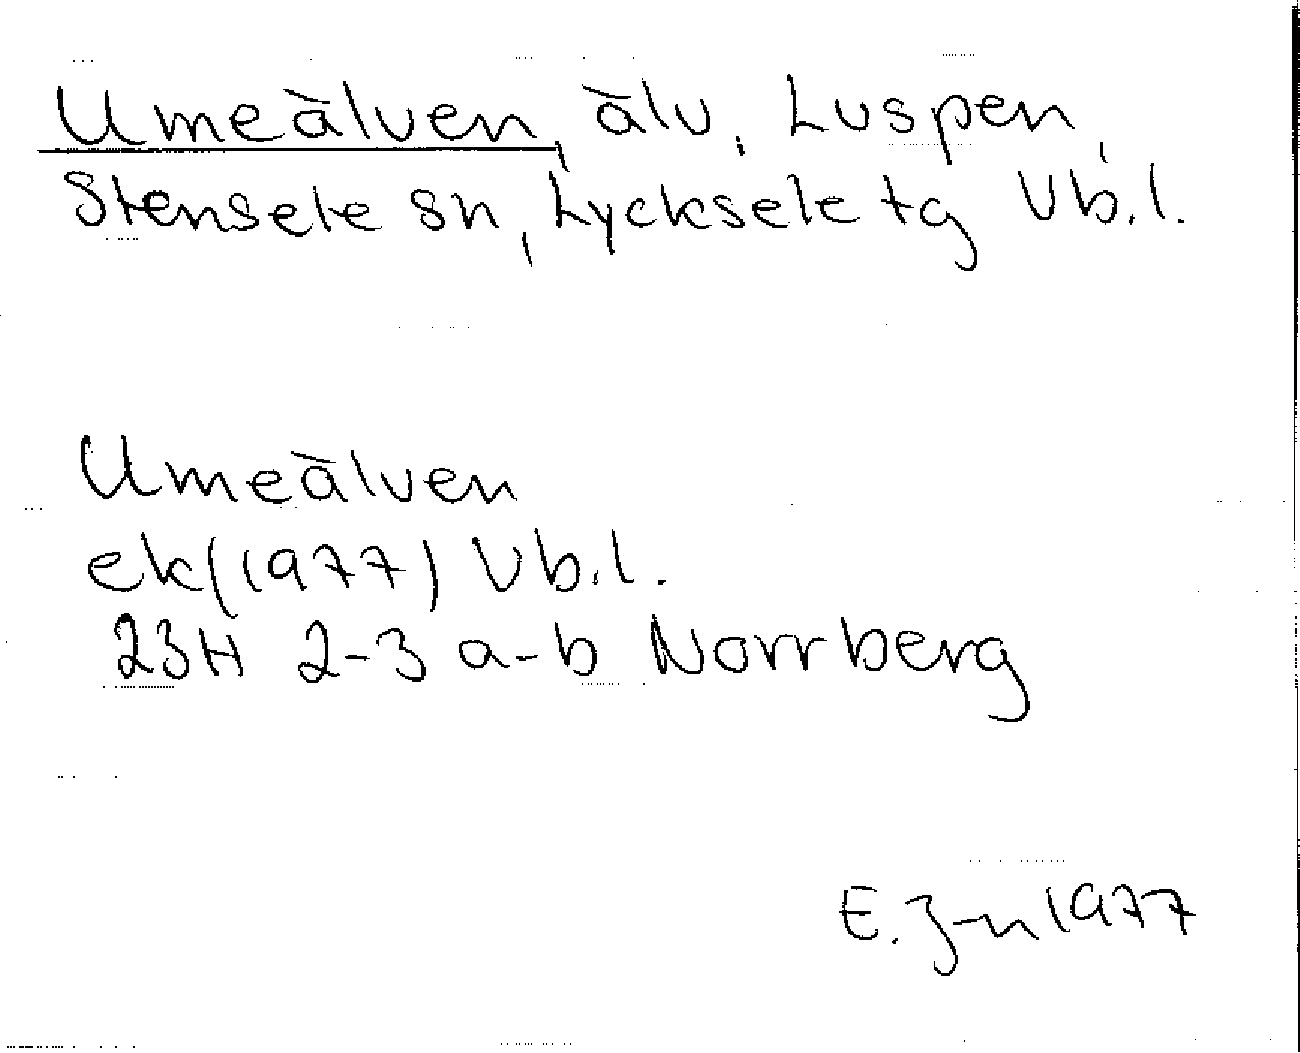 Umeälven, älv, Luspen,
Stensele sn, Lycksele tg Vb.l.
Umeälven
ek(1977) Vb.l.
23H 2-3 a-b Norrberg
E. J-n 1977